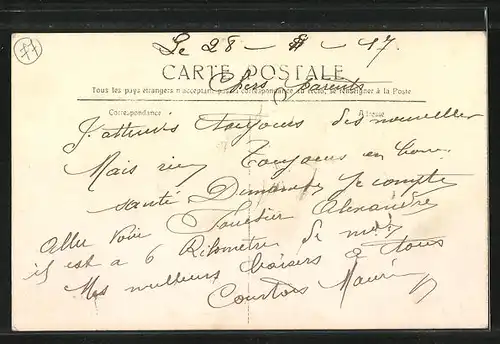 Le 28 - 8 - 17
CARTE POSTALE
Chers parents
Tous les pays étrangers n'acceptent pas la correspondance au recto, se renseigner à la Poste
Correspondance
Adresse
J'attends toujours des nouvelles
Mais rien Toujours en bonne
santé Dimanche Je compte
aller voir Alexandre
il est a 6 Kilometre de moi
Mes meilleurs baisers a tous
Courtois Mauri